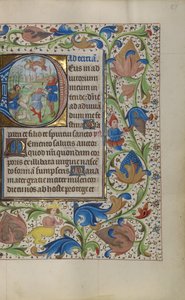 Ad tertiā.
Deus in ad
iutorium
meum in
tende. Dñe
ad adiuuā
dum me fe
stina. Gloria
patri et filio et spiritui sancto
Memento salutis auctor
quod nostri quondam cor
poris ex illibata virgine nascē
do formā sumpseris. Maria
mater gratie mater misericor
die tu nos ab hoste protege et